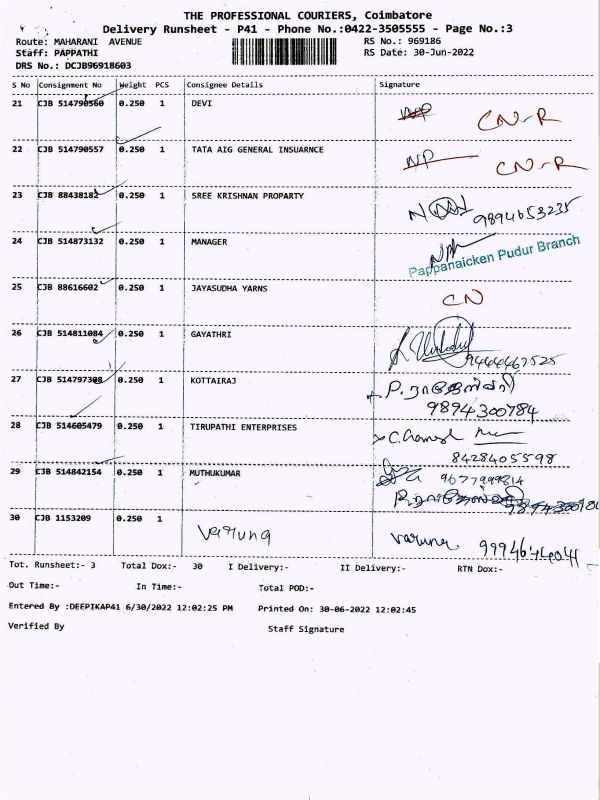 THE PROFESSIONAL COURIERS, Coimbatore
Delivery Runsheet - P41 - Phone No.:0422-3505555 - Page No.:3
Route: MAHARANI AVENUE RS No.: 969186
Staff: PAPPATHI RS Date: 30-Jun-2022
DRS No.: DCJB96918603
S No Consignment No Weight PCS Consignee Details Signature
21 CJB 514790560 0.250 1 DEVI NP CN-R
22 CJB 514790557 0.250 1 TATA AIG GENERAL INSUARNCE NP CN-R
23 CJB 88438182 0.250 1 SREE KRISHNAN PROPARTY 9894653235
24 CJB 514873132 0.250 1 MANAGER
Pappanaicken Pudur Branch
25 CJB 88616602 0.250 1 JAYASUDHA YARNS CN
26 CJB 514811084 0.250 1 GAYATHRI 9444467525
27 CJB 514797308 0.250 1 KOTTAIRAJ P. ராஜேஸ்வரி
9894300784
28 CJB 514605479 0.250 1 TIRUPATHI ENTERPRISES
8428405598
29 CJB 514842154 0.250 1 MUTHUKUMAR 9677999814
30 CJB 1153209 0.250 1 Varuna Varuna 9994644041
Tot. Runsheet:- 3 Total Dox:- 30 I Delivery:- II Delivery:- RTN Dox:-
Out Time:- In Time:- Total POD:-
Entered By :DEEPIKAP41 6/30/2022 12:02:25 PM Printed On: 30-06-2022 12:02:45
Verified By Staff Signature